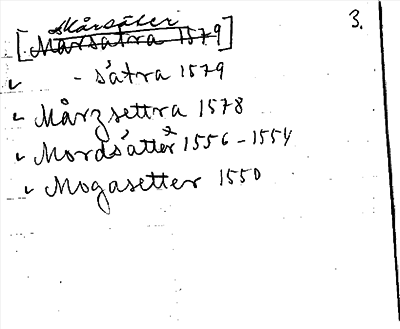 3.
Mårsäter
[Mårsätra 1579]
- sätra 1579
Mårzsettra 1578
Mordsätter 1556-1554
Mogasetter 1550